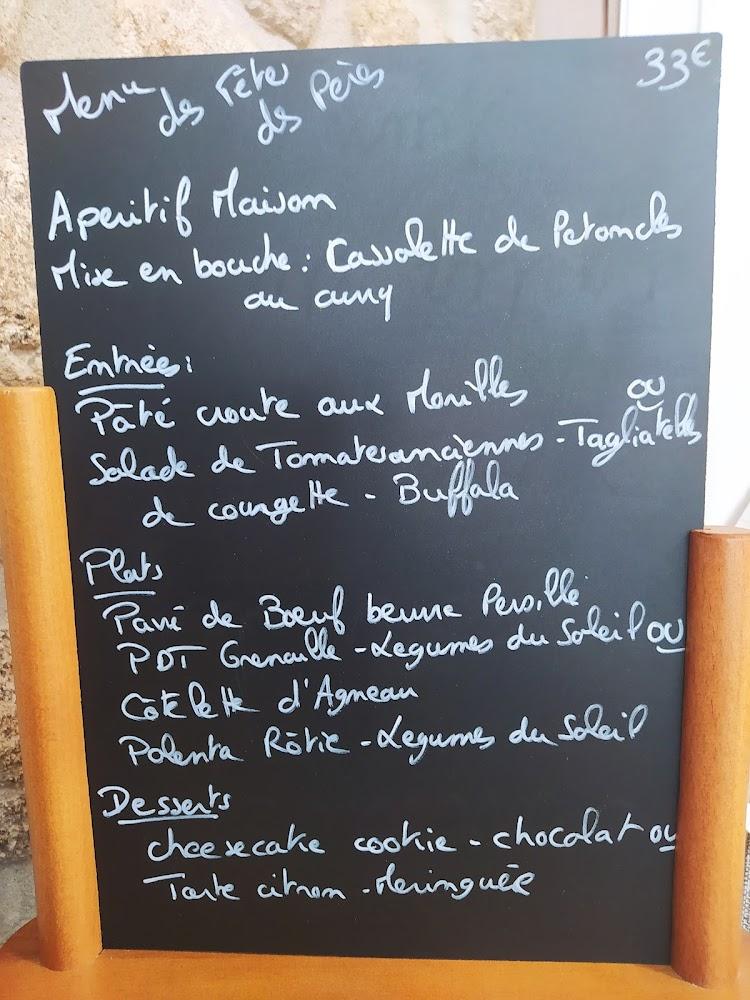 Menu des Fêtes des Pères 33€
Aperitif Maison
Mise en bouche : Cassolette de Petoncles
au curry
Entrées :
Pâté croute aux Morilles ou
Salade de Tomates anciennes - Tagliatelles
de courgette - Buffala
Plats
Pavé de Boeuf beurre Persillé
PDT Grenaille - Legumes du Soleil OU
Côtelette d'Agneau
Polenta Rôtie - Legumes du Soleil
Desserts
cheesecake cookie - chocolat ou
Tarte citron - Meringuée